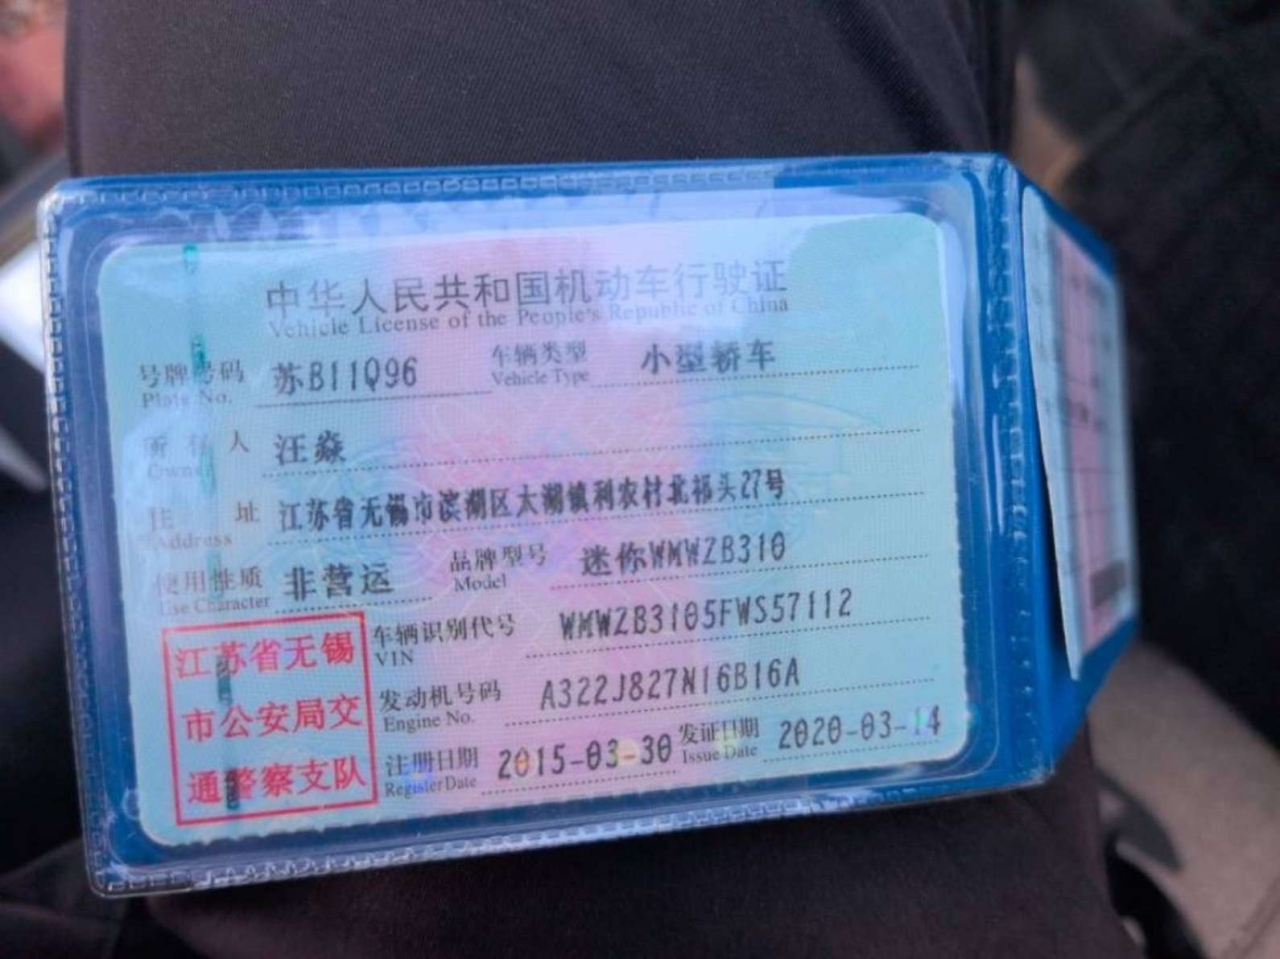 中华人民共和国机动车行驶证
Vehicle License of the People's Republic of China
号牌号码 苏B11Q96 车辆类型 小型轿车
Plate No. Vehicle Type
所有人 汪焱
Owner
住址 江苏省无锡市滨湖区太湖镇利农村北祁头27号
Address
使用性质 非营运 品牌型号 迷你WMWZB310
Use Character Model
江苏省无锡
市公安局交
通警察支队
车辆识别代号 WMWZB3105FWS57112
VIN
发动机号码 A322J827N16B16A
Engine No.
注册日期 2015-03-30 发证日期 2020-03-14
Register Date Issue Date